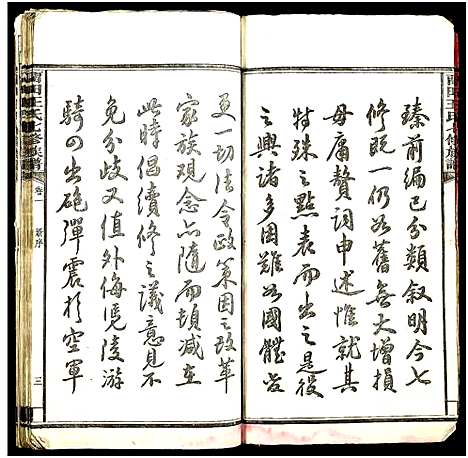 臻前編已分類叙明今七
修既一仍如舊無大增損
毋庸贅詞申述惟就其
特殊之點表而出之是役
之興諸多困難如國體变
更一切法令政策因之改革
家族觀念亦隨而頓減在
此時倡續修之議意見不
免分歧又值外侮憑陵游
騎四出砲彈震於空軍
蘭田王氏七修族譜
卷一
新序
三